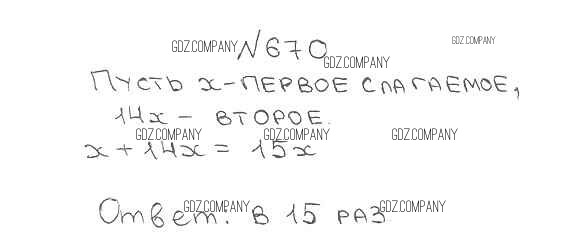 GDZ.COMPANY №670 GDZ.COMPANY
GDZ.COMPANY
Пусть x - первое слагаемое,
14x - второе.
GDZ.COMPANY GDZ.COMPANY GDZ.COMPANY
x + 14x = 15x
GDZ.COMPANY GDZ.COMPANY
Ответ: в 15 раз